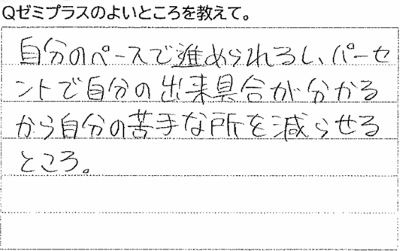 Qゼミプラスのよいところを教えて。
自分のペースで進められるし、パーセ
ントで自分の出来具合が分かる
から自分の苦手な所を減らせる
ところ。